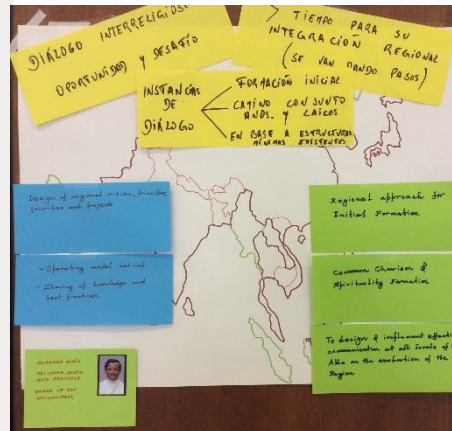 DIÁLOGO INTERRELIGIOSO
OPORTUNIDAD y DESAFÍO
TIEMPO PARA SU
INTEGRACIÓN REGIONAL
(SE VAN DANDO PASOS)
INSTANCIAS
DE
DIÁLOGO
FORMACIÓN INICIAL
CAMINO CONJUNTO
HNOS. y LAICOS
EN BASE A ESTRUCTURAS
MÍNIMAS EXISTENTES
Design of regional vision, priorities
and projects
- Operating model
- Sharing of knowledge and
best practices
SOUTH
ASIA PROVINCE
Regional approach for
Initial Formation
Common Charism &
Spirituality Formation
To design & implement effective
communication at all levels of
Asia on the evaluation of the
Region